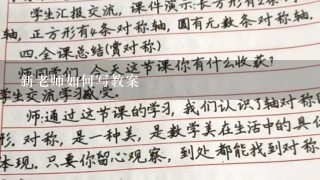 学生汇报交流,课件演示:长方形有2条
轴,正方形有4条对称轴,圆有无数条对称轴.
四.全课总结(赏对称)
师:同学们,今天这节课你有什么收获?
新老师如何写教案
学生交流学习
师:通过这节课的学习,我们认识了轴对称
形.对称,是一种美,是数学美在生活中的具
体现.只要你留心观察,到处都能找到对称